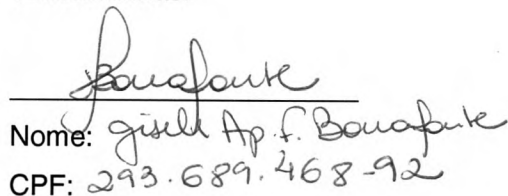 Bonafonte
Nome: Gisele Ap. F. Bonafonte
CPF: 293.689.468-92